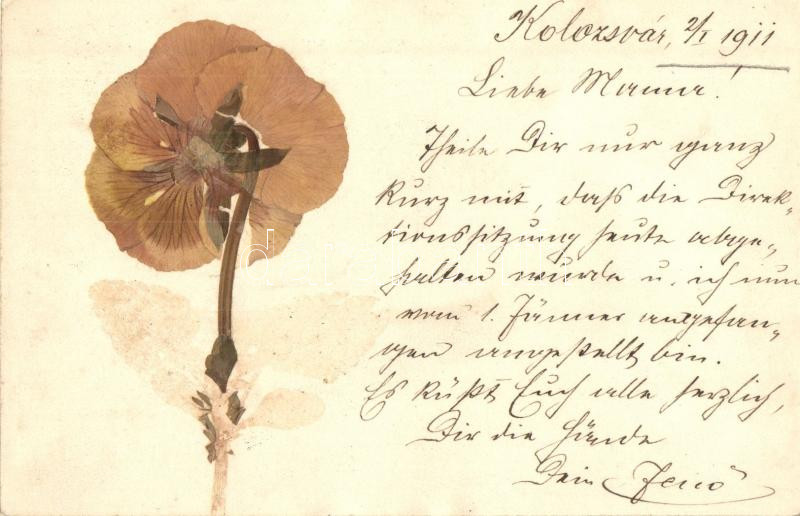 Kolozsvár, 2/I 1911
Liebe Mama!
Theile Dir nur ganz
kurz mit, daß die Direk-
tionssitzung heute abge-
halten wurde u. ich nun
vom 1. Jänner angefan-
gen angestellt bin.
Es küßt Euch alle herzlich,
Dir die Hände
Dein Jenő